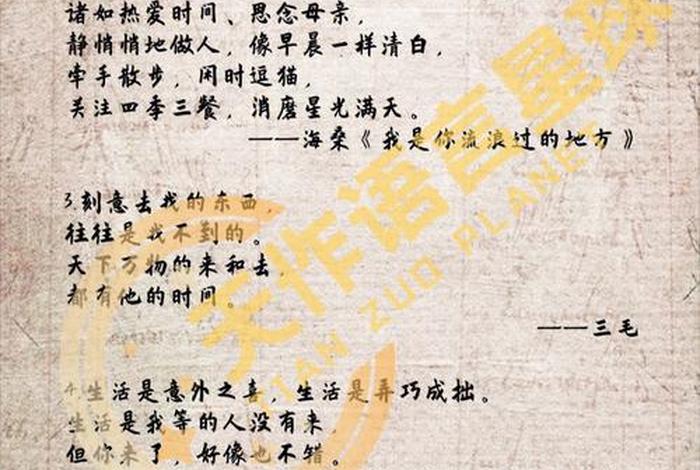 诸如热爱时间、思念母亲，
静悄悄地做人，像早晨一样清白，
牵手散步，闲时逗猫，
关注四季三餐，消磨星光满天。
——海桑《我是你流浪过的地方》
3.刻意去我的东西，
往往是我不到的。
天下万物的来和去，
都有他的时间。
——三毛
4.生活是意外之喜，生活是弄巧成拙。
生活是我等的人没有来，
但你来了，好像也不错。
天作语言星球
TIAN ZUO PLANET